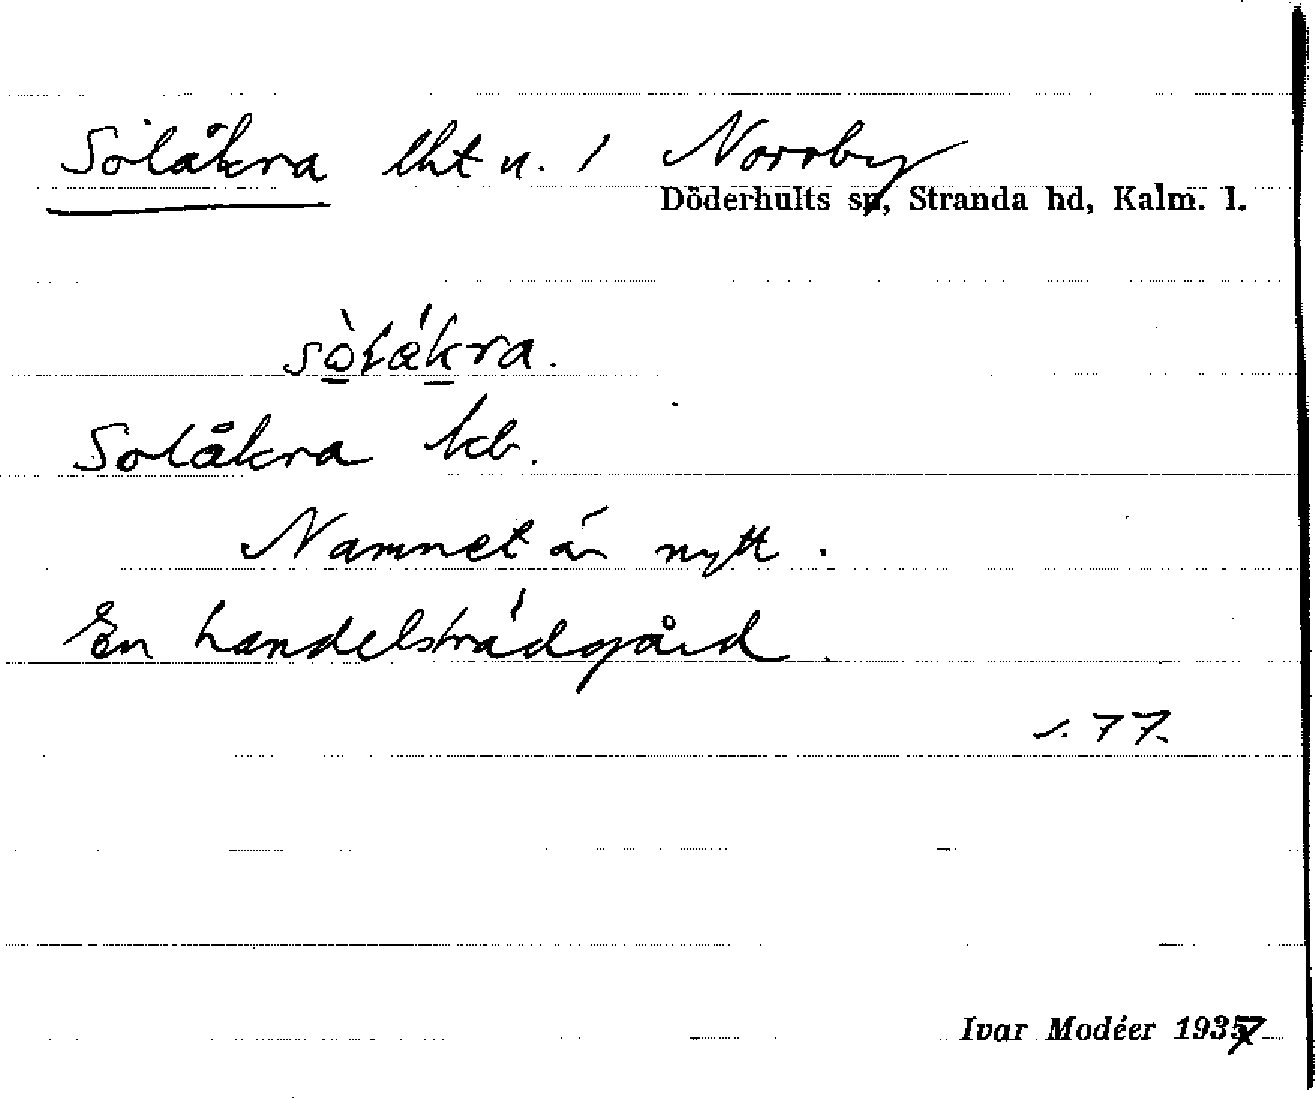 Solåkra lht u. / Norrby
Döderhults sn, Stranda hd, Kalm. l.
sò̠låk̠ra.
Solåkra kb.
Namnet är nytt.
En handelsträdgård.
s. 77.
Ivar Modéer 1937